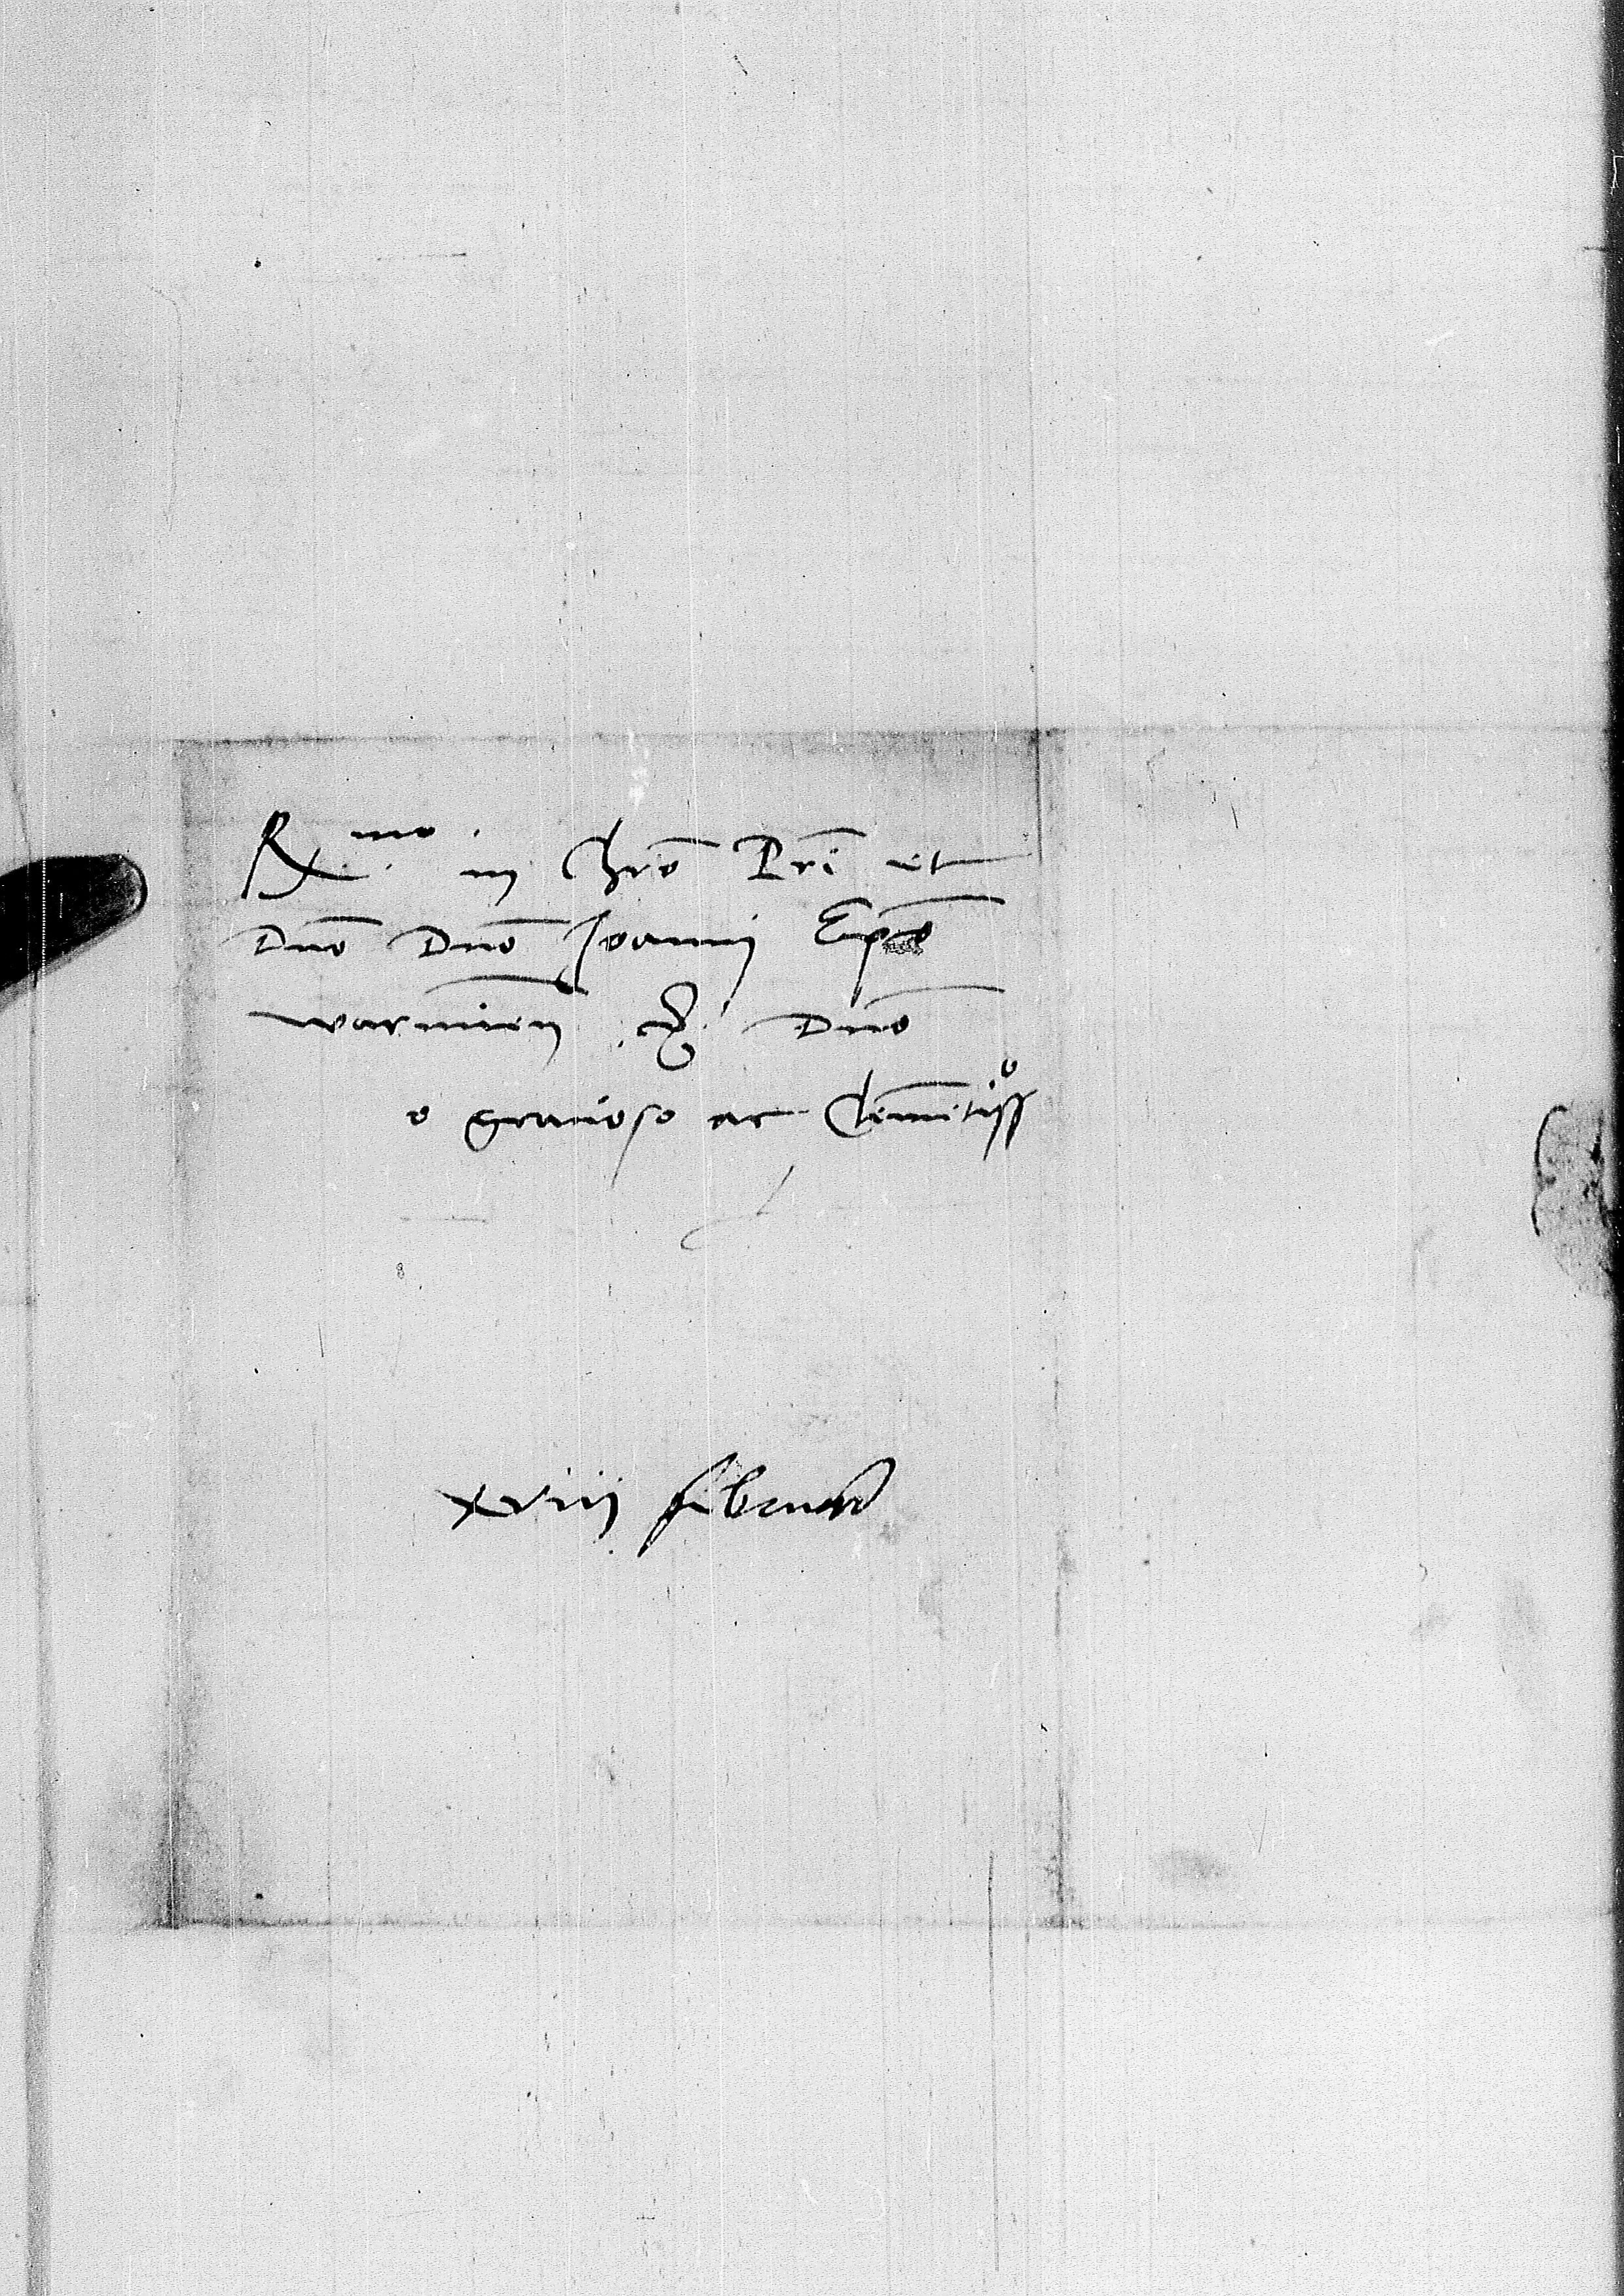 R.mo in Chro Pri et
Dno Dno Joanni Epo
warmien etc. Dno
o gracioso ac Clementisso
xviij februarij